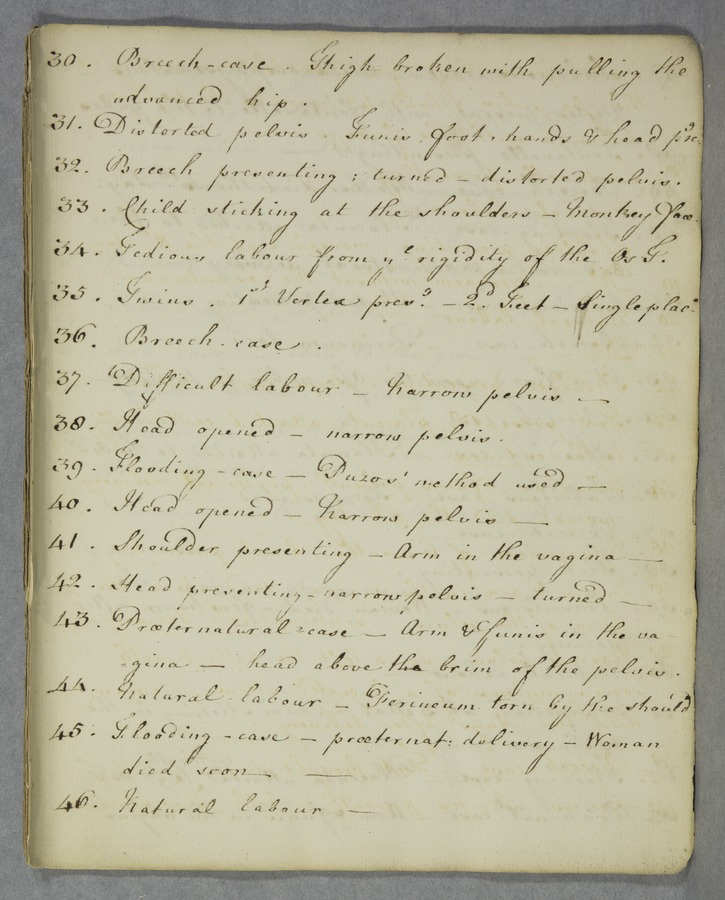 30. Breech-case. Thigh broken with pulling the
advanced hip.
31. Distorted pelvis. Funis, foot, hands & head pres:
32. Breech presenting; turned – distorted pelvis.
33. Child sticking at the shoulders – Monkey face.
34. Tedious labour from yᵉ rigidity of the Os T.
35. Twins. 1ˢᵗ Vertex presᵍ. – 2ᵈ. Feet – Single placᵃ
36. Breech-case.
37. Difficult labour – Narrow pelvis —
38. Head opened – narrow pelvis.
39. Flooding-case – Puzos' method used —
40. Head opened – Narrow pelvis —
41. Shoulder presenting – Arm in the vagina —
42. Head presenting – narrow pelvis – turned —
43. Præternatural-case – Arm & funis in the va
-gina — head above the brim of the pelvis.
44. Natural-labour – Perineum torn by the should
45. Flooding-case – præternat: delivery – Woman
died soon — —
46. Natural labour —